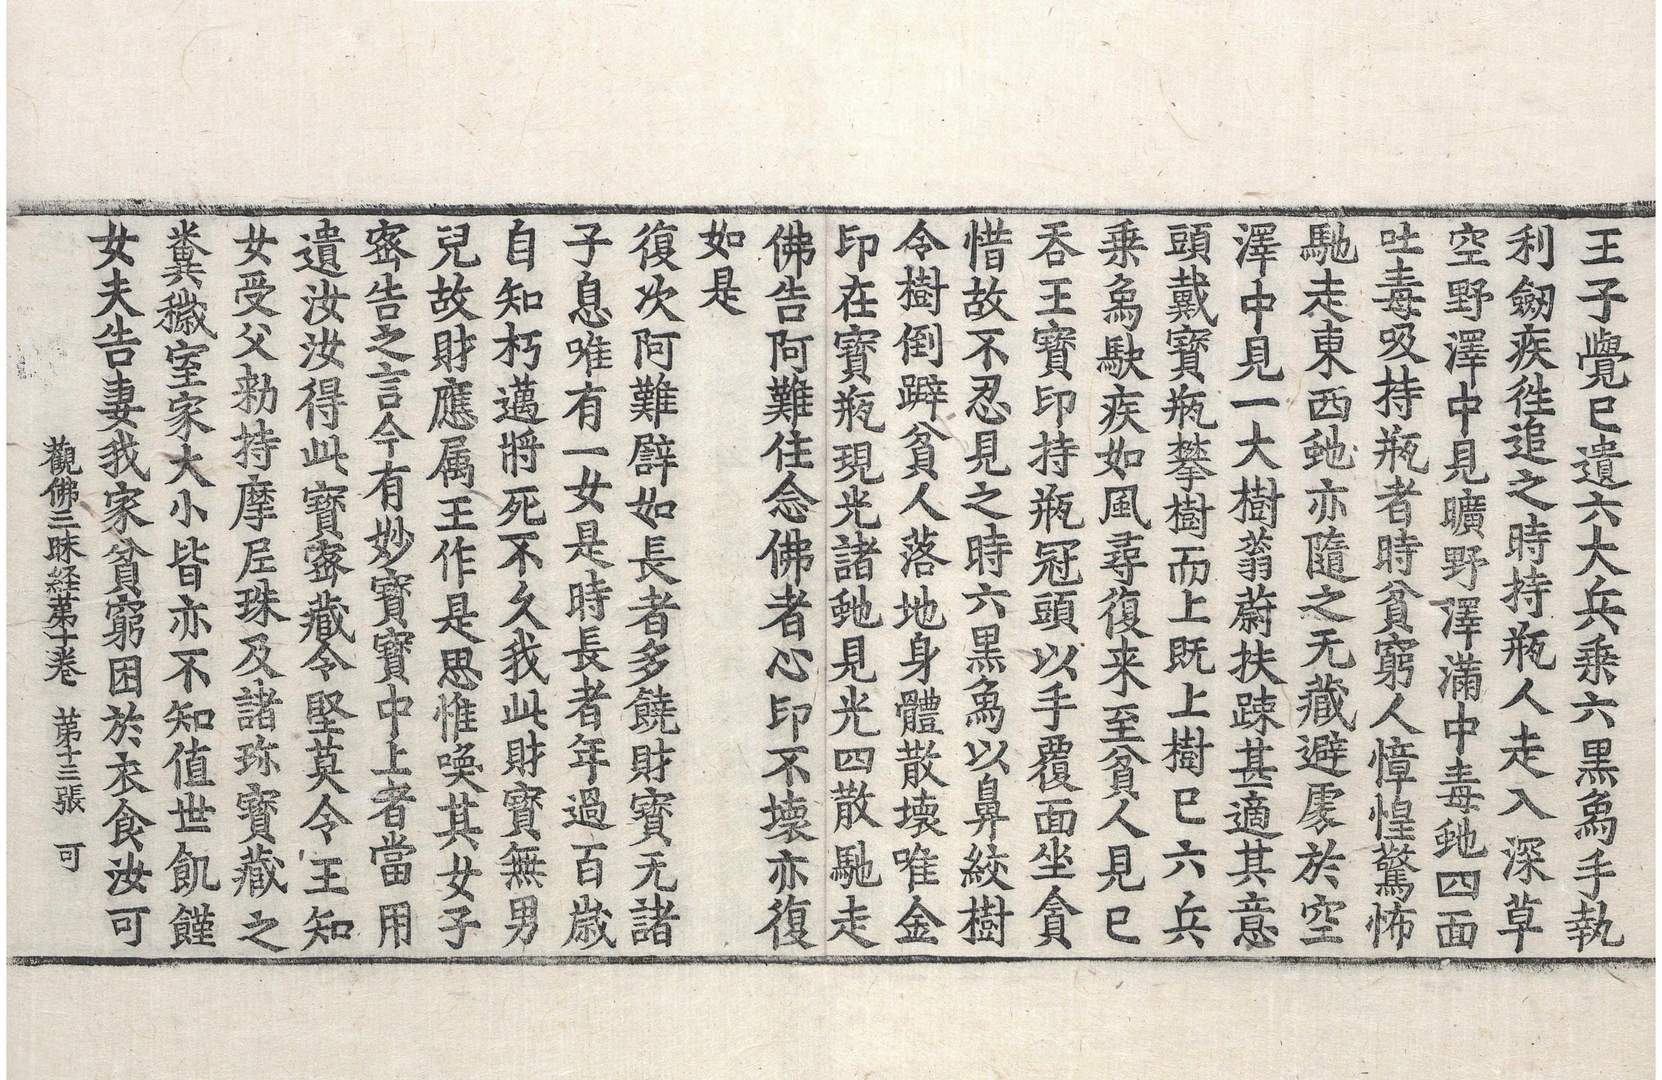 王子覺已遺六大兵乗六黒象手執
利劔疾徃追之時持瓶人走入深草
空野澤中見曠野澤滿中毒虵四面
吐毒吸持瓶者時貧窮人慞惶驚怖
馳走東西虵亦隨之无藏避處於空
澤中見一大樹蓊蔚扶踈甚適其意
頭戴寶瓶攀樹而上既上樹已六兵
乗象駃疾如風尋復来至貧人見已
吞王寶印持瓶冠頭以手覆面坐貪
惜故不忍見之時六黒象以鼻絞樹
令樹倒躃貧人落地身體散壊唯金
印在寶瓶現光諸虵見光四散馳走
佛告阿難住念佛者心印不壊亦復
如是
復次阿難譬如長者多饒財寶无諸
子息唯有一女是時長者年過百歳
自知朽邁將死不久我此財寶無男
兒故財應属王作是思惟喚其女子
宻告之言今有妙寶寶中上者當用
遺汝汝得此寶宻藏令堅莫令王知
女受父勑持摩尼珠及諸珎寶藏之
糞穢室家大小皆亦不知值世飢饉
女夫告妻我家貧窮困於衣食汝可
觀佛三昧経苐十卷 苐十三張 可